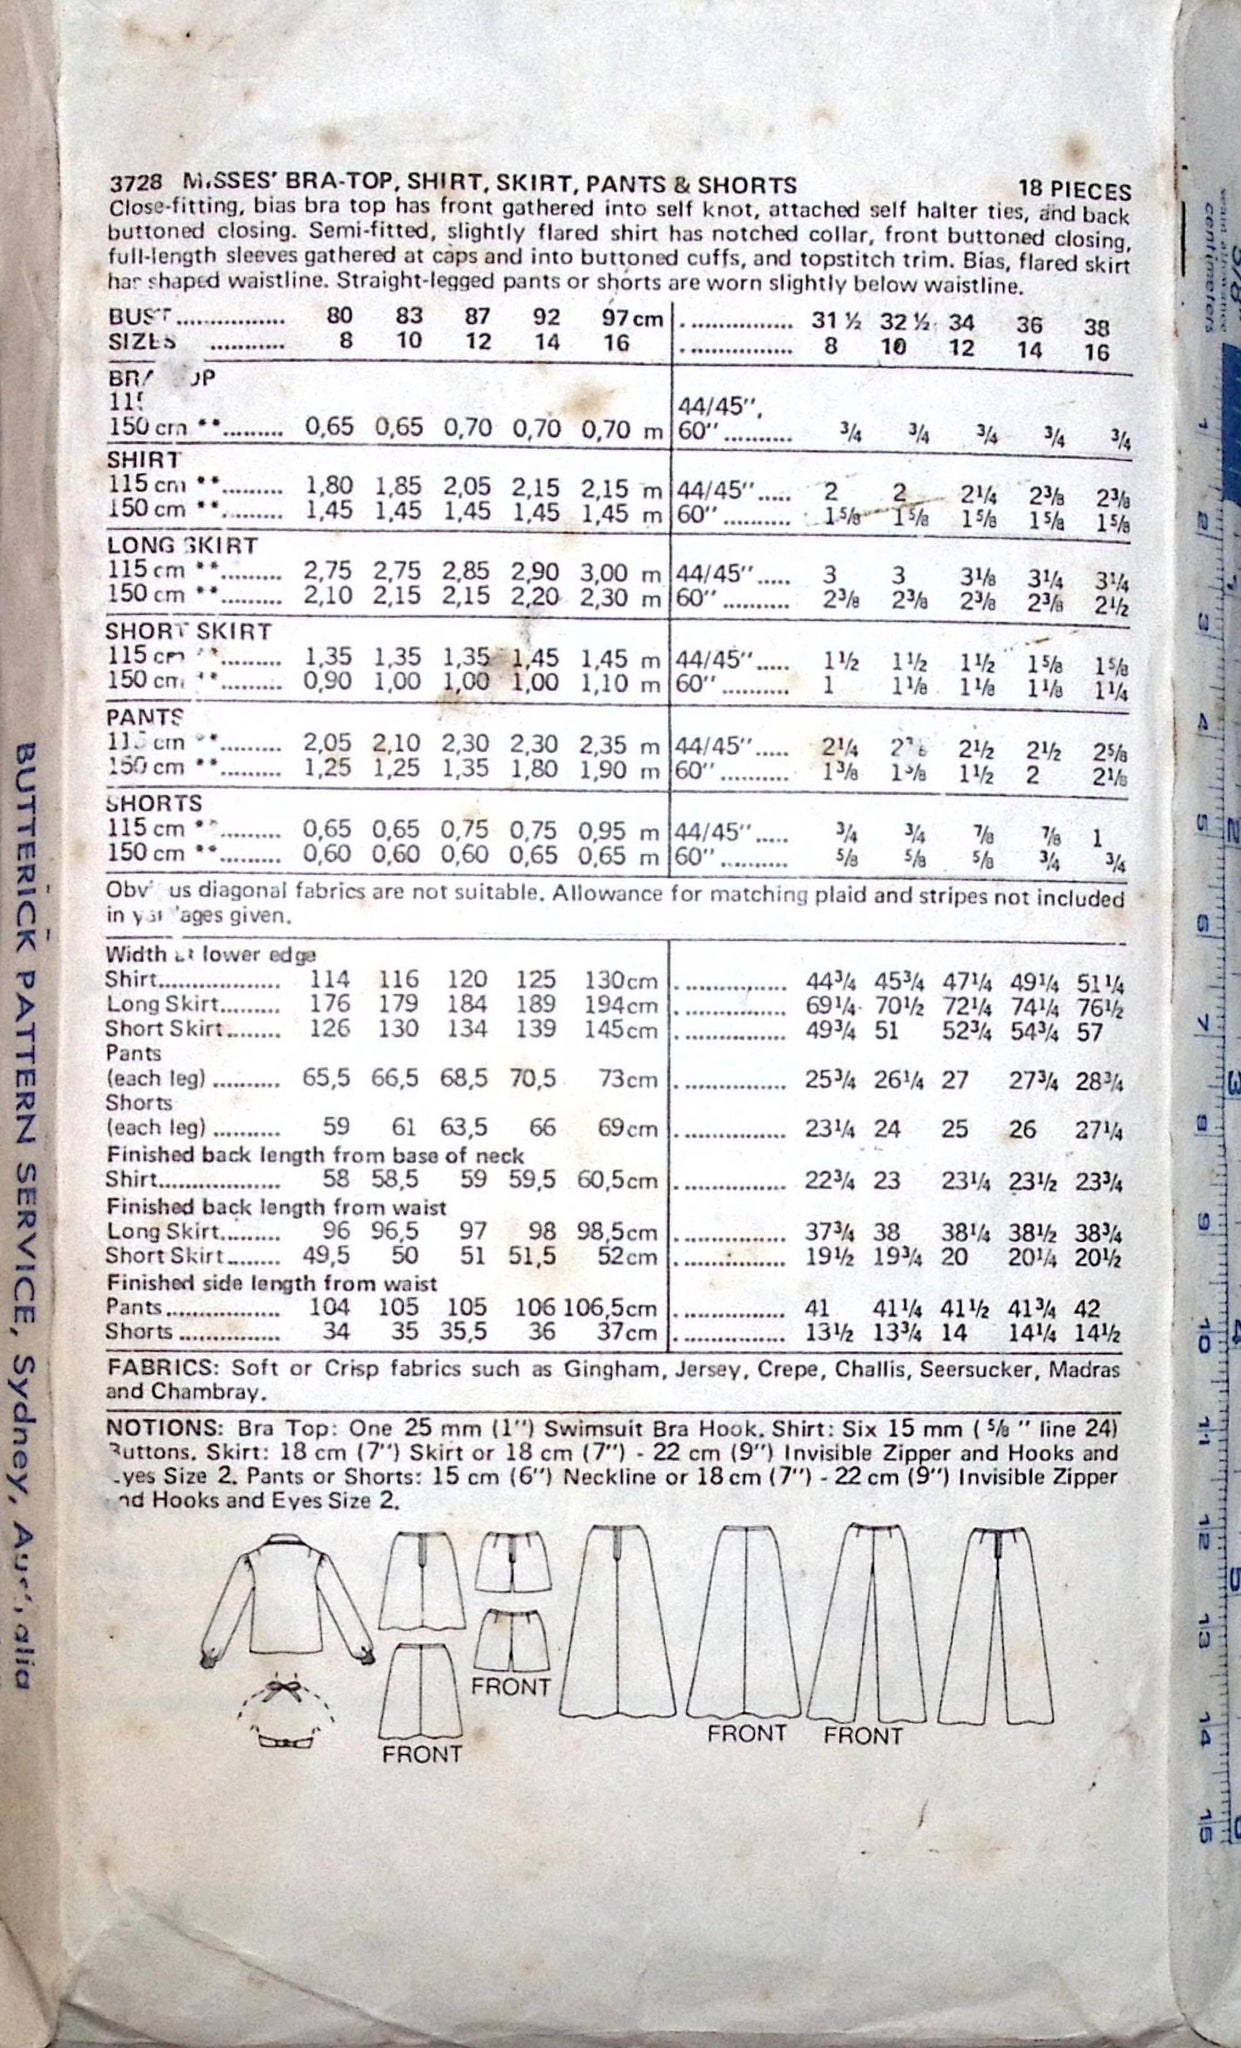 3728 MISSES' BRA-TOP, SHIRT, SKIRT, PANTS & SHORTS 18 PIECES
Close-fitting, bias bra top has front gathered into self knot, attached self halter ties, and back
buttoned closing. Semi-fitted, slightly flared shirt has notched collar, front buttoned closing,
full-length sleeves gathered at caps and into buttoned cuffs, and topstitch trim. Bias, flared skirt
has shaped waistline. Straight-legged pants or shorts are worn slightly below waistline.
BUST ................ 80 83 87 92 97 cm ................ 31 ½ 32 ½ 34 36 38
SIZES ........... 8 10 12 14 16 ................ 8 10 12 14 16
BRA TOP
115 44/45",
150 cm **......... 0,65 0,65 0,70 0,70 0,70 m 60" .......... ¾ ¾ ¾ ¾ ¾
SHIRT
115 cm **......... 1,80 1,85 2,05 2,15 2,15 m 44/45" ..... 2 2 2¼ 2⅜ 2⅜
150 cm **......... 1,45 1,45 1,45 1,45 1,45 m 60" .......... 1⅝ 1⅝ 1⅝ 1⅝ 1⅝
LONG SKIRT
115 cm **......... 2,75 2,75 2,85 2,90 3,00 m 44/45" ..... 3 3 3⅛ 3¼ 3¼
150 cm **......... 2,10 2,15 2,15 2,20 2,30 m 60" .......... 2⅜ 2⅜ 2⅜ 2⅜ 2½
SHORT SKIRT
115 cm **......... 1,35 1,35 1,35 1,45 1,45 m 44/45" ..... 1½ 1½ 1½ 1⅝ 1⅝
150 cm **......... 0,90 1,00 1,00 1,00 1,10 m 60" .......... 1 1⅛ 1⅛ 1⅛ 1¼
PANTS
115 cm **......... 2,05 2,10 2,30 2,30 2,35 m 44/45" ..... 2¼ 2½ 2½ 2⅝
150 cm **......... 1,25 1,25 1,35 1,80 1,90 m 60" .......... 1⅜ 1⅜ 1½ 2 2⅛
SHORTS
115 cm **......... 0,65 0,65 0,75 0,75 0,95 m 44/45" ..... ¾ ¾ ⅞ ⅞ 1
150 cm **......... 0,60 0,60 0,60 0,65 0,65 m 60" .......... ⅝ ⅝ ⅝ ¾ ¾
Obvious diagonal fabrics are not suitable. Allowance for matching plaid and stripes not included
in yardages given.
Width at lower edge
Shirt.................. 114 116 120 125 130cm ................ 44¾ 45¾ 47¼ 49¼ 51¼
Long Skirt......... 176 179 184 189 194cm ................ 69¼ 70½ 72¼ 74¼ 76½
Short Skirt........ 126 130 134 139 145cm ................ 49¾ 51 52¾ 54¾ 57
Pants
(each leg) .......... 65,5 66,5 68,5 70,5 73cm ................ 25¾ 26¼ 27 27¾ 28¾
Shorts
(each leg) .......... 59 61 63,5 66 69cm ................ 23¼ 24 25 26 27¼
Finished back length from base of neck
Shirt.................. 58 58,5 59 59,5 60,5cm ................ 22¾ 23 23¼ 23½ 23¾
Finished back length from waist
Long Skirt......... 96 96,5 97 98 98,5cm ................ 37¾ 38 38¼ 38½ 38¾
Short Skirt........ 49,5 50 51 51,5 52cm ................ 19½ 19¾ 20 20¼ 20½
Finished side length from waist
Pants................. 104 105 105 106 106,5cm ................ 41 41¼ 41½ 41¾ 42
Shorts ............... 34 35 35,5 36 37cm ................ 13½ 13¾ 14 14¼ 14½
FABRICS: Soft or Crisp fabrics such as Gingham, Jersey, Crepe, Challis, Seersucker, Madras
and Chambray.
NOTIONS: Bra Top: One 25 mm (1") Swimsuit Bra Hook. Shirt: Six 15 mm ( ⅝ " line 24)
Buttons. Skirt: 18 cm (7") Skirt or 18 cm (7") - 22 cm (9") Invisible Zipper and Hooks and
Eyes Size 2. Pants or Shorts: 15 cm (6") Neckline or 18 cm (7") - 22 cm (9") Invisible Zipper
and Hooks and Eyes Size 2.
FRONT
FRONT
FRONT
FRONT
BUTTERICK PATTERN SERVICE, Sydney, Australia
5/8"
centimeters
1 2 3 4 5 6 7 8 9 10 11 12 13 14 15
1 2 3 4 5 6